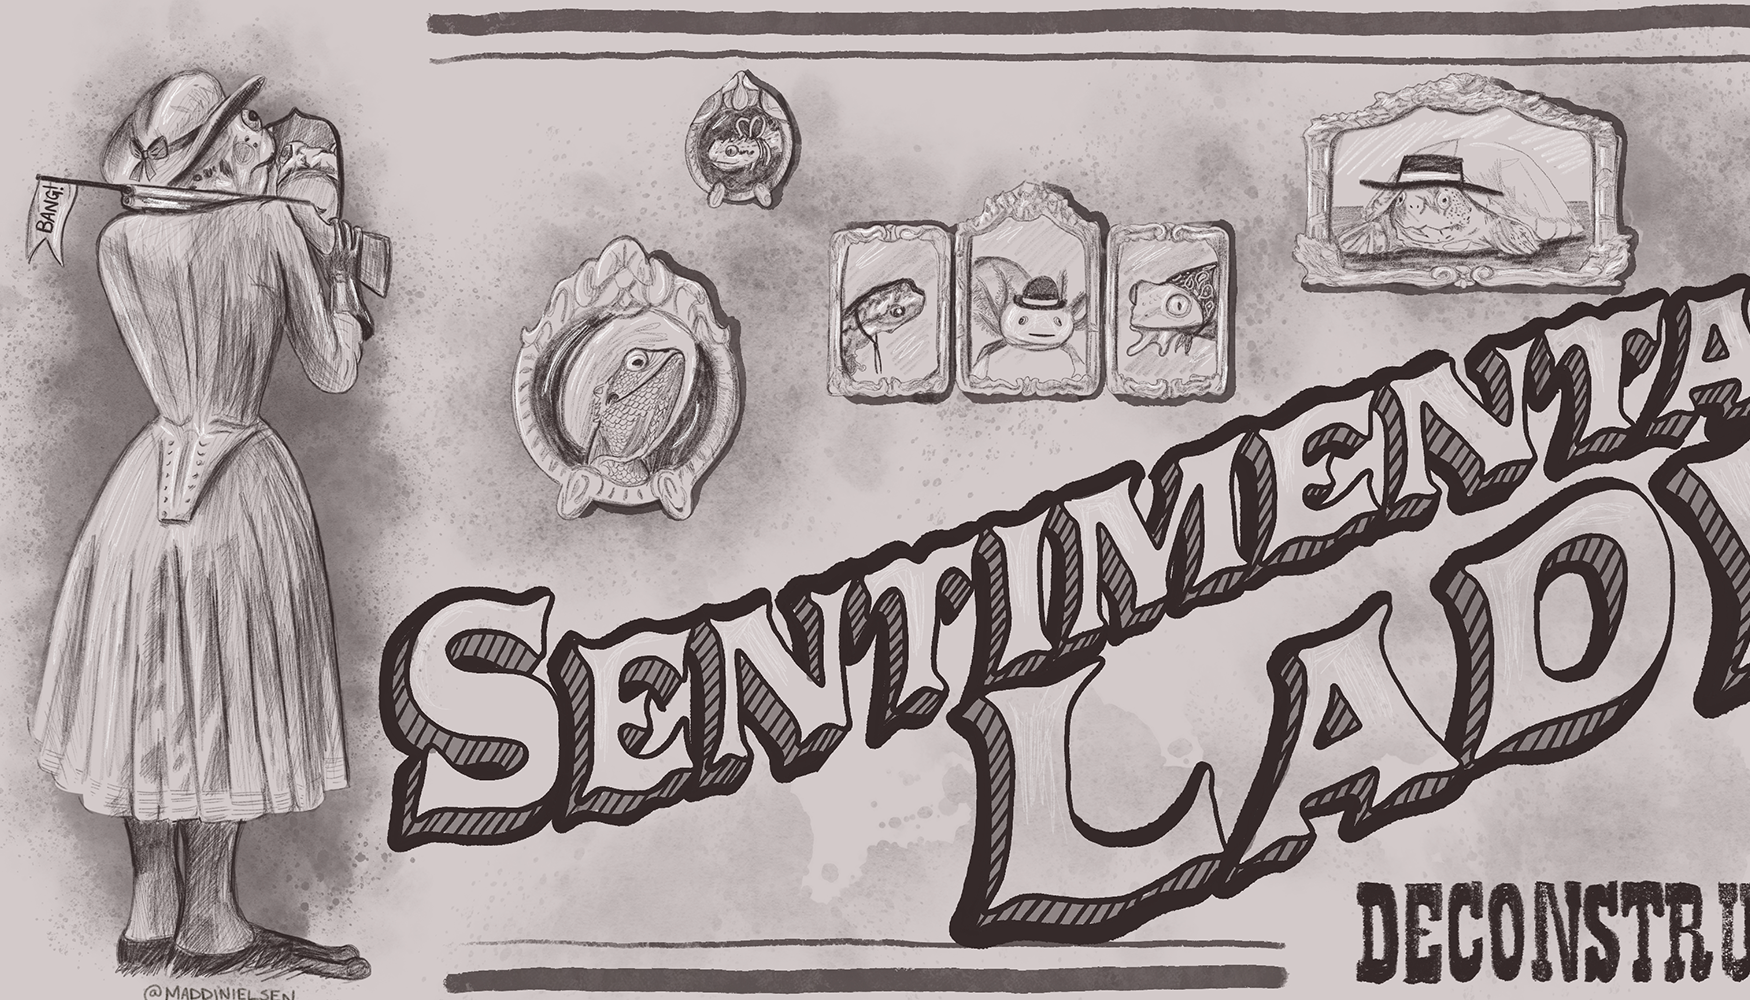 BANG!
SENTIMENTA
LADY
DECONSTRU
@MADDINIELSEN